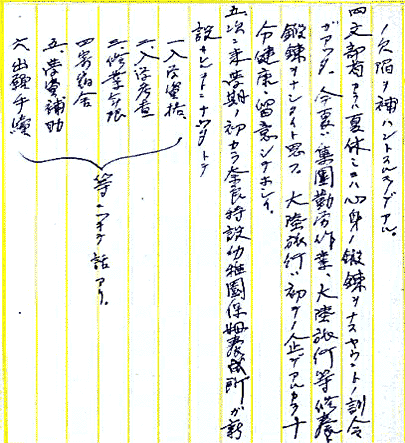 ノ欠陥ヲ補ハントスルノデアル。
四文部省デハ夏休ミニハ心身ノ鍛錬ヲナスヤウニトノ訓令
ガアッタ、今夏ハ集團勤労作業、大陸旅行等修養
鍛錬ヲナシタイト思フ。大陸旅行ハ初メノ人止デアルカラ十
分健康ニ留意シテホシイ。
五、次ニ来学期ノ初カラ奈良特設幼稚園保姆養成所ガ新
設サレルヿトナッタトテ
一、入学資格、
二、入学考査
三、修業年限
四、寄宿舎
五、学資補助
六、出願手續
等ニツキテ話アリ。